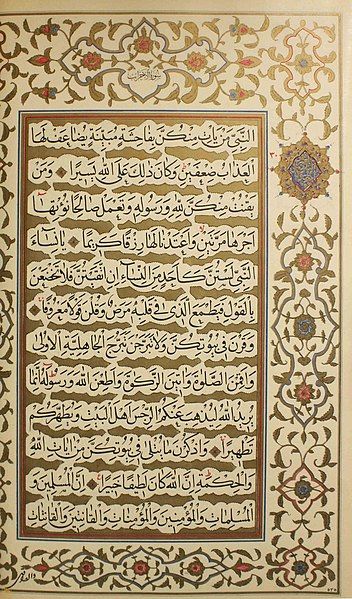 سورة الأحزاب
النَّبِيِّ مَنْ يَأْتِ مِنْكُنَّ بِفَاحِشَةٍ مُبَيِّنَةٍ يُضَاعَفْ لَهَا
الْعَذَابُ ضِعْفَيْنِ وَكَانَ ذٰلِكَ عَلَى اللّٰهِ يَسِيرًا وَمَنْ
يَقْنُتْ مِنْكُنَّ لِلّٰهِ وَرَسُولِهِ وَتَعْمَلْ صَالِحًا نُؤْتِهَا
أَجْرَهَا مَرَّتَيْنِ وَأَعْتَدْنَا لَهَا رِزْقًا كَرِيمًا يَا نِسَاءَ
النَّبِيِّ لَسْتُنَّ كَأَحَدٍ مِنَ النِّسَاءِ إِنِ اتَّقَيْتُنَّ فَلَا تَخْضَعْنَ
بِالْقَوْلِ فَيَطْمَعَ الَّذِي فِي قَلْبِهِ مَرَضٌ وَقُلْنَ قَوْلًا مَعْرُوفًا
وَقَرْنَ فِي بُيُوتِكُنَّ وَلَا تَبَرَّجْنَ تَبَرُّجَ الْجَاهِلِيَّةِ الْأُولَىٰ
وَأَقِمْنَ الصَّلٰوةَ وَآتِينَ الزَّكٰوةَ وَأَطِعْنَ اللّٰهَ وَرَسُولَهُ إِنَّمَا
يُرِيدُ اللّٰهُ لِيُذْهِبَ عَنْكُمُ الرِّجْسَ أَهْلَ الْبَيْتِ وَيُطَهِّرَكُمْ
تَطْهِيرًا وَاذْكُرْنَ مَا يُتْلَىٰ فِي بُيُوتِكُنَّ مِنْ آيَاتِ اللّٰهِ
وَالْحِكْمَةِ إِنَّ اللّٰهَ كَانَ لَطِيفًا خَبِيرًا إِنَّ الْمُسْلِمِينَ وَ
الْمُسْلِمَاتِ وَالْمُؤْمِنِينَ وَالْمُؤْمِنَاتِ وَالْقَانِتِينَ وَالْقَانِتَاتِ